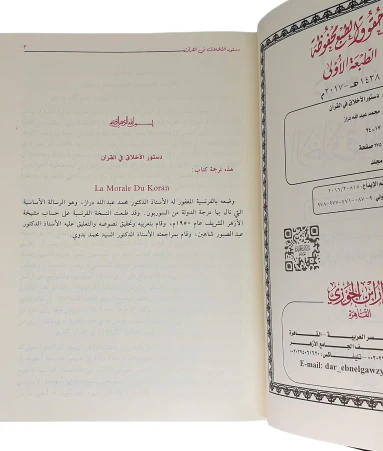 حقوق الطبع محفوظة
الطبعة الأولى
١٤٣٨ هـ - ٢٠١٧ م
دستور الأخلاق في القرآن
محمد عبد الله دراز
١٧×٢٤
صفحة
مجلد
دار ابن الجوزي
القاهرة
E-mail: dar_ebnelgawzy
دستور الأخلاق في القرآن
٣
بسم الله الرحمن الرحيم
دستور الأخلاق في القرآن
هذه ترجمة كتاب:
La Morale Du Koran
وضعه بالفرنسية المغفور له الأستاذ الدكتور محمد عبد الله دراز، وهو الرسالة الأساسية
التي نال بها درجة الدولة من السوربون. وقد طبعت النسخة الفرنسية على حساب مشيخة
الأزهر الشريف عام ١٩٥٠م، وقام بتعريبه وتحقيق نصوصه والتعليق عليه الأستاذ الدكتور
عبد الصبور شاهين، كما قام بمراجعته الأستاذ الدكتور السيد محمد بدوي.